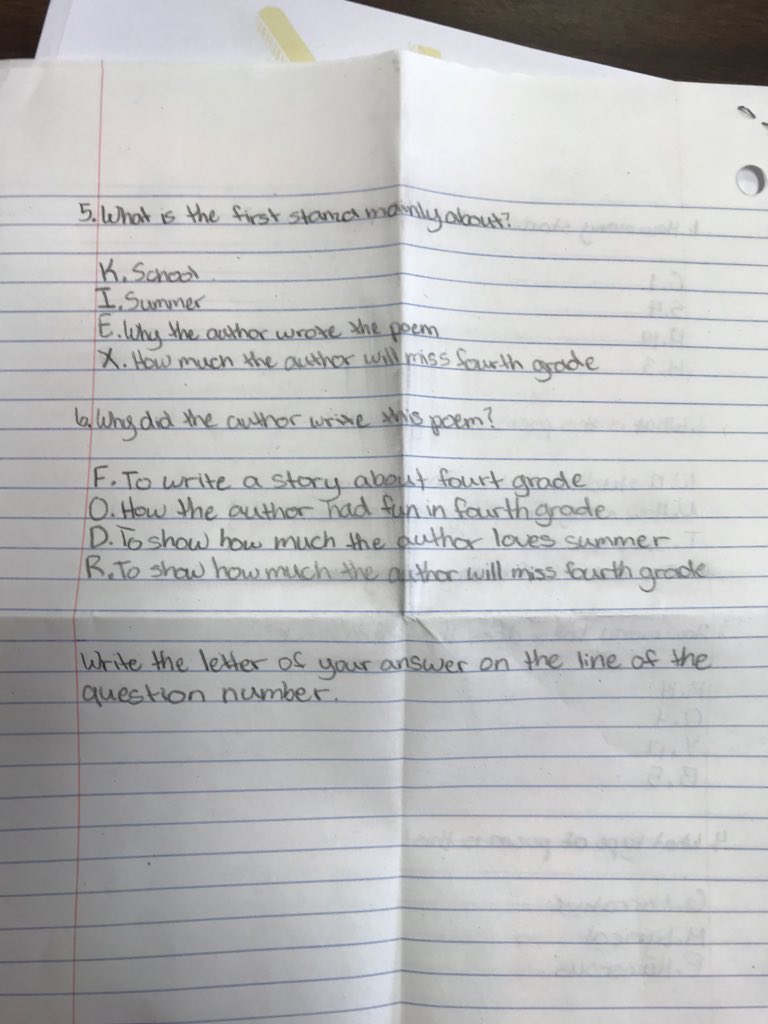 5. What is the first stanza mainly about?
K. School
I. Summer
E. Why the author wrote the poem
X. How much the author will miss fourth grade
6. Why did the author write this poem?
F. To write a story about fourt grade
O. How the author had fun in fourth grade
D. To show how much the author loves summer
R. To show how much the author will miss fourth grade
Write the letter of your answer on the line of the
question number.